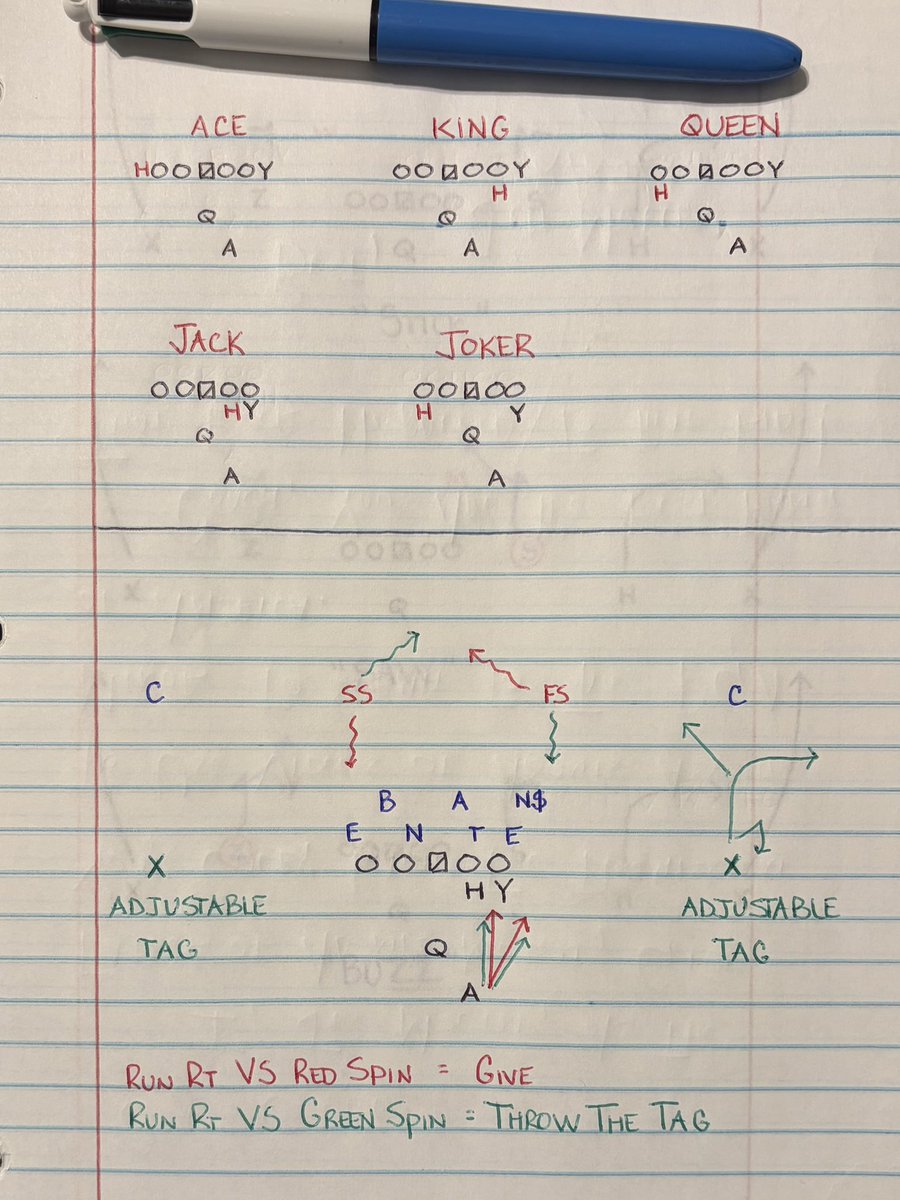 ACE KING QUEEN
HOO OOY OO OOY OO OOY
H H
Q Q Q
A A A
JACK JOKER
OO OO OO OO
HY H Y
Q Q
A A
C SS FS C
B A N$
E N T E
X O O O O X
H Y
ADJUSTABLE ADJUSTABLE
TAG Q TAG
A
RUN RT VS RED SPIN = GIVE
RUN RT VS GREEN SPIN = THROW THE TAG